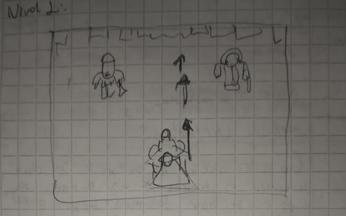 Nivel 1: